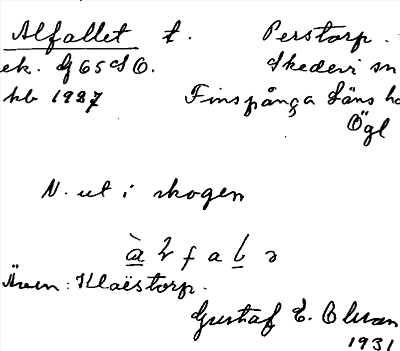 Alfallet t. Perstorp.
ek. G65SO. Skedevi sn
kb 1937 Finspånga Läns h
Ögl
N. ut i skogen
Även: Klaëstorp.
Gustaf E. Olsson
1931